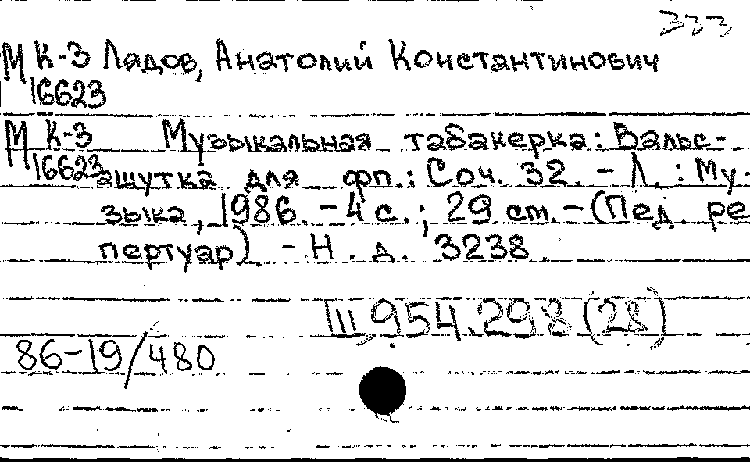 333
М К-3 Лядов, Анатолий Константинович
16623
М К-3 Музыкальная табакерка: Вальс-
16623 шутка для фп.: Соч. 32. - Л. : Му-
зыка, 1986. - 4 с. ; 29 см. - (Пед. ре
пертуар) - Н. д. 3238
III 954.298 (28)
86-19/480